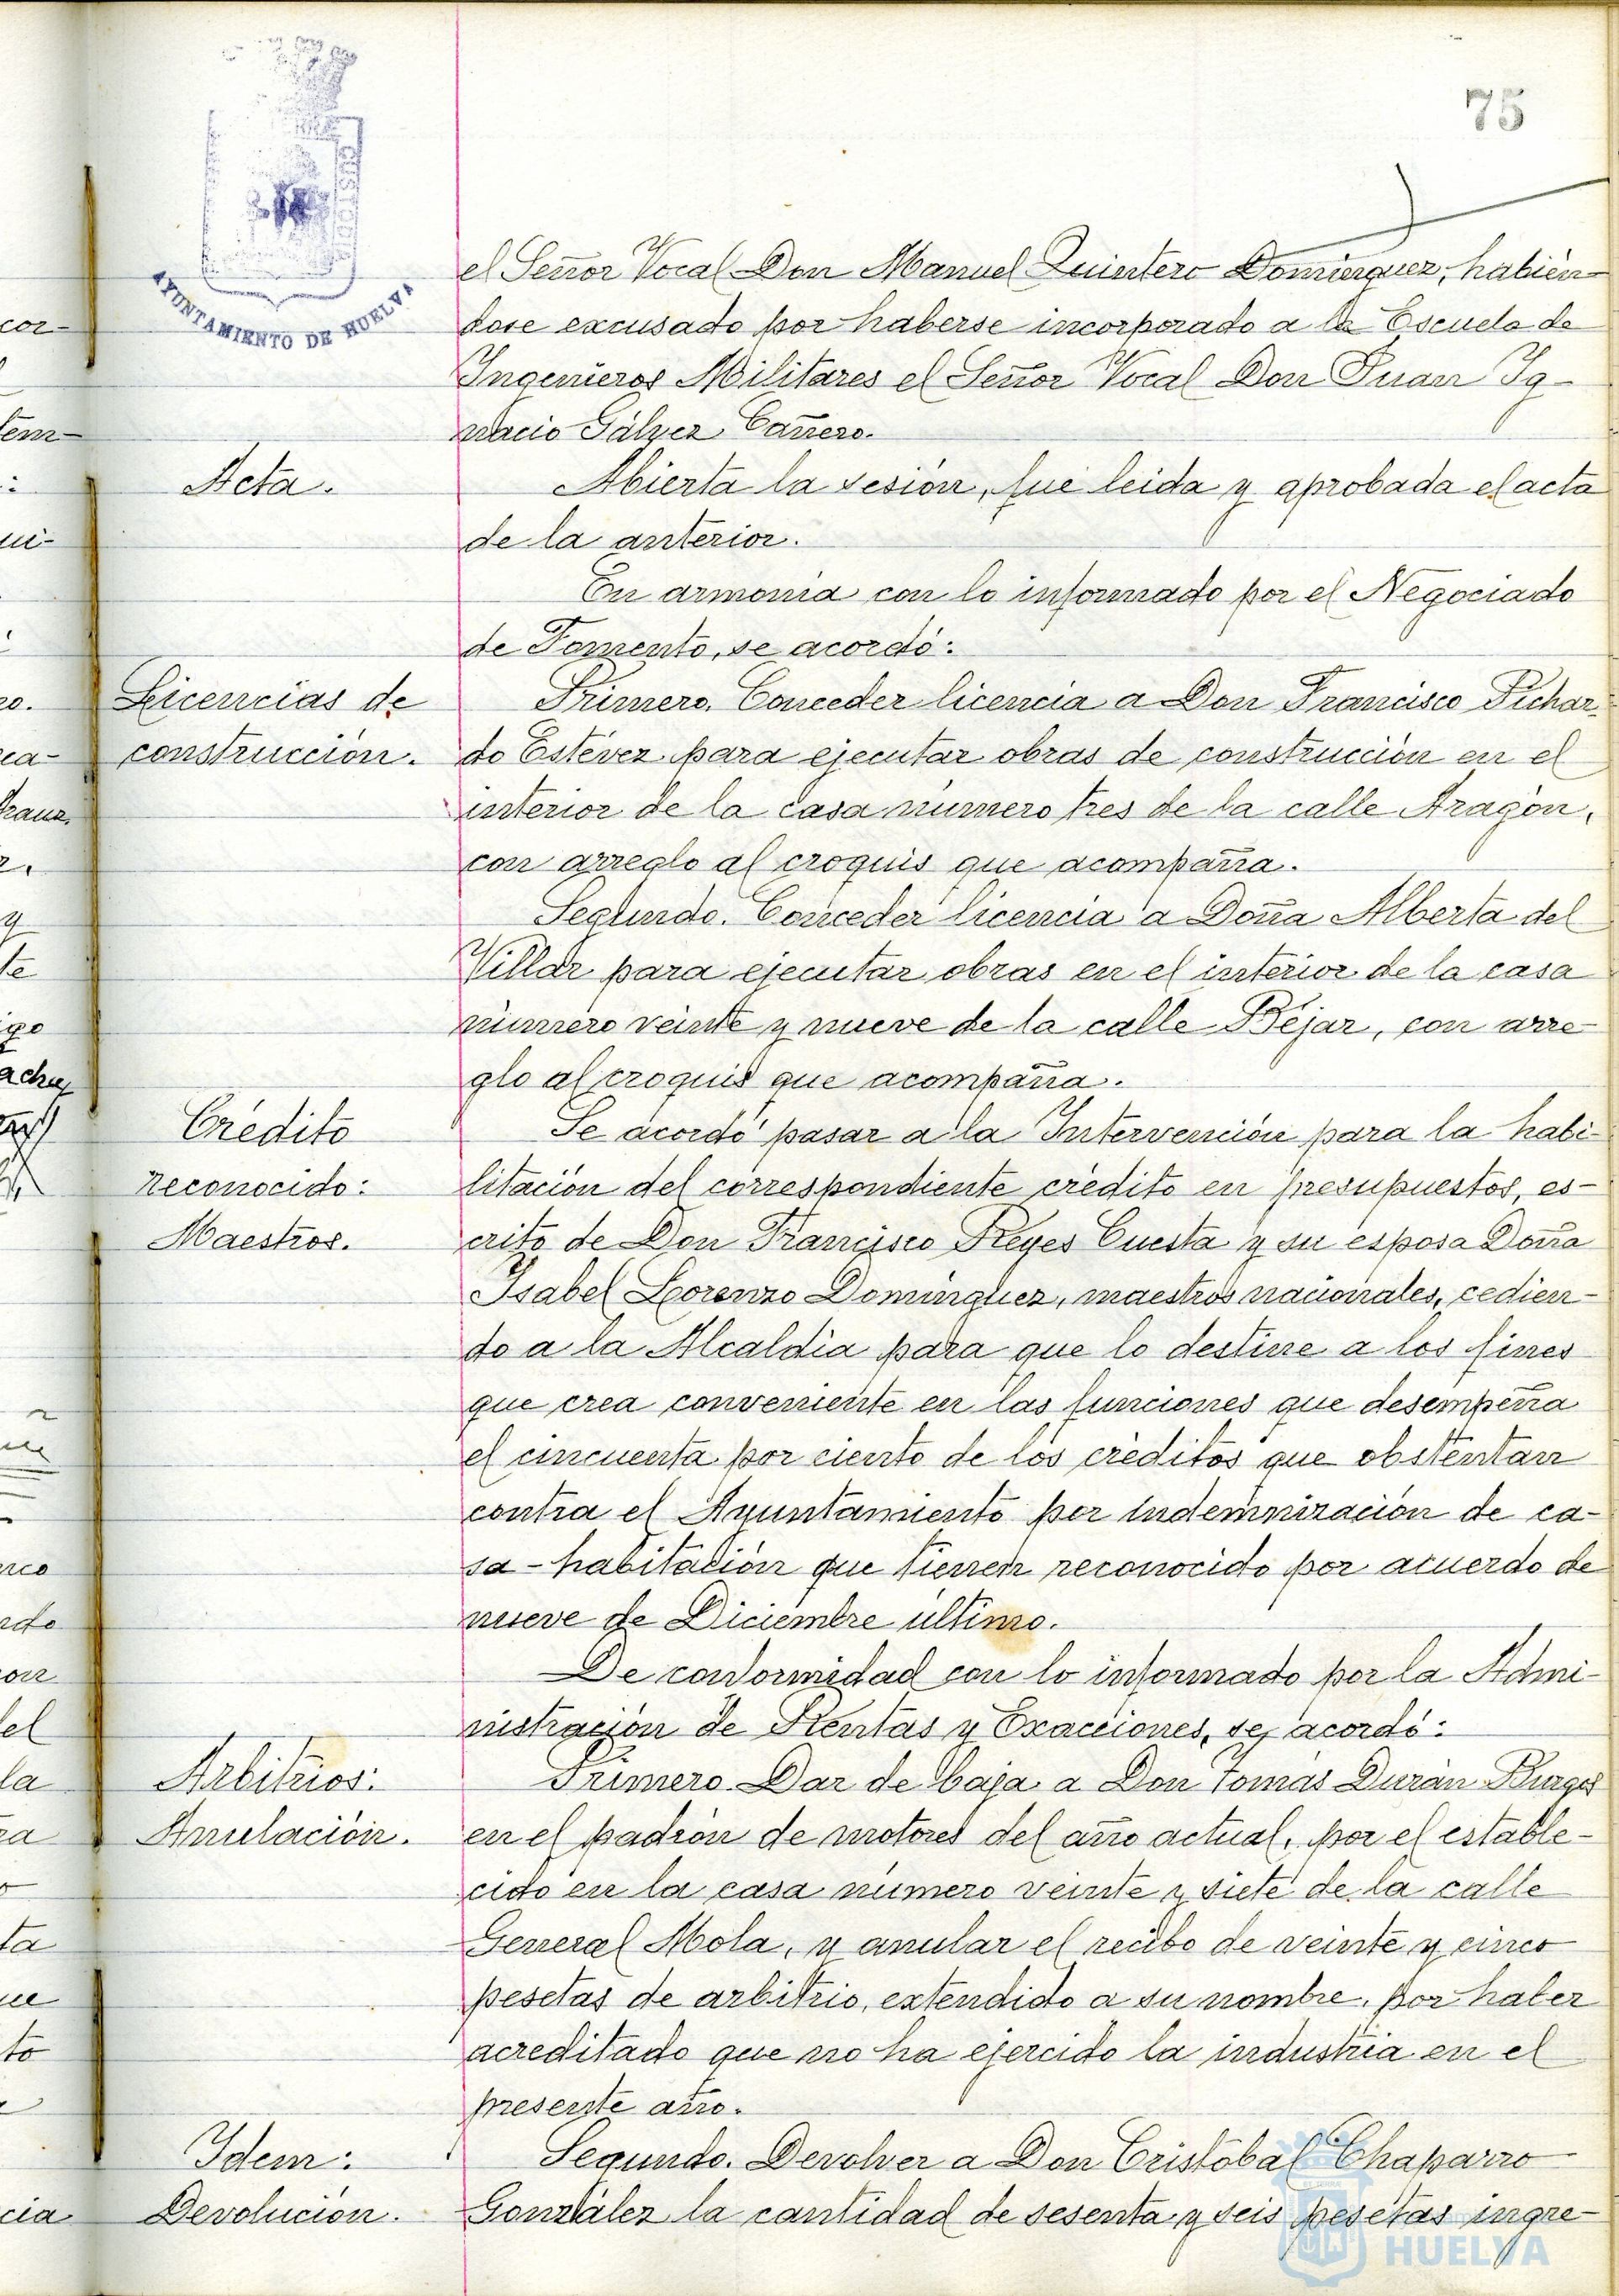 75
AYUNTAMIENTO DE HUELVA
el Señor Vocal Don Manuel Quintero Domínguez, habién-
dose excusado por haberse incorporado a la Escuela de
Ingenieros Militares el Señor Vocal Don Juan Ig-
nacio Gálvez Cañero.
Acta.
Abierta la sesión, fué leida y aprobada el acta
de la anterior.
En armonia con lo informado por el Negociado
de Fomento, se acordó:
Licencias de
construcción.
Primero. Conceder licencia a Don Francisco Pichar-
do Estévez para ejecutar obras de construcción en el
interior de la casa número tres de la calle Aragón,
con arreglo al croquis que acompaña.
Segundo. Conceder licencia a Doña Alberta del
Villar para ejecutar obras en el interior de la casa
número veinte y nueve de la calle Béjar, con arre-
glo al croquis que acompaña.
Crédito
reconocido:
Maestros.
Se acordó pasar a la Intervención para la habi-
litación del correspondiente crédito en presupuestos, es-
crito de Don Francisco Reyes Cuesta y su esposa Doña
Isabel Lorenzo Domínguez, maestros nacionales, cedien-
do a la Alcaldía para que lo destine a los fines
que crea conveniente en las funciones que desempeña
el cincuenta por ciento de los créditos que obstentan
contra el Ayuntamiento por indemnización de ca-
sa-habitación que tienen reconocido por acuerdo de
nueve de Diciembre último.
De conformidad con lo informado por la Admi-
nistración de Rentas y Exacciones, se acordó:
Arbitrios:
Anulación.
Primero. Dar de baja a Don Tomás Durán Burgos
en el padrón de motores del año actual, por el estable-
cido en la casa número veinte y siete de la calle
General Mola, y anular el recibo de veinte y cinco
pesetas de arbitrio, extendido a su nombre, por haber
acreditado que no ha ejercido la industria en el
presente año.
Idem:
Devolución.
Segundo. Devolver a Don Cristóbal Chaparro
González la cantidad de sesenta y seis pesetas ingre-
HUELVA